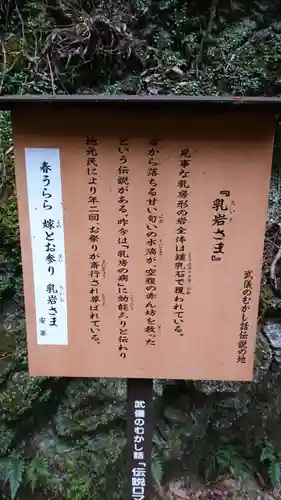 武儀のむかし話伝説の地
『乳岩さま』
見事な乳房形の岩全体は鍾乳石で覆われている。
岩から落ちる甘い匂いの水滴が、空腹の赤ん坊を救った
という伝説がある。昨今は「乳房の病」に効能ありと伝わり
地元民により年二回お祭りが斎行され尊ばれている。
春うらら 嫁とお参り 乳岩さま
武儀のむかし話「伝説ロマ